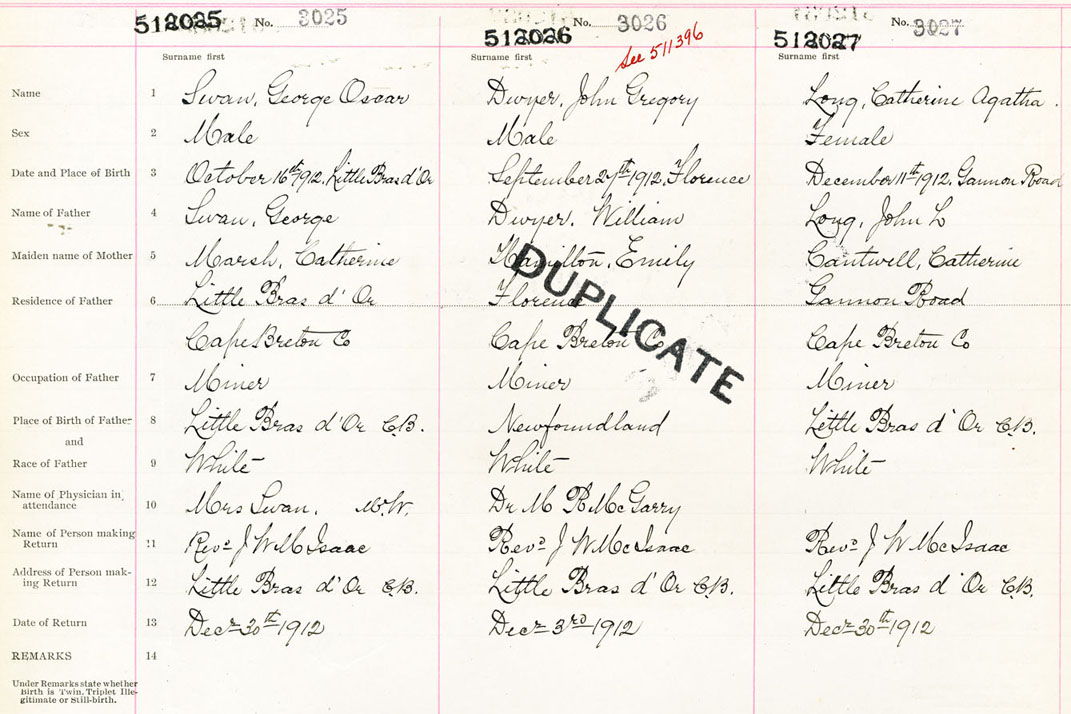 512025 No. 3025
512026 No. 3026
See 511396
512027 No. 3027
Surname first Surname first Surname first
Name 1 Swan, George Oscar Dwyer, John Gregory Long, Catherine Agatha.
Sex 2 Male Male Female
Date and Place of Birth 3 October 16th 1912, Little Bras d'Or September 27th 1912, Florence December 11th 1912, Gannon Road
Name of Father 4 Swan, George Dwyer, William Long, John L
Maiden name of Mother 5 Marsh, Catherine Hamilton, Emily Cantwell, Catherine
Residence of Father 6 Little Bras d'Or Florence Gannon Road
Cape Breton Co Cape Breton Co Cape Breton Co
DUPLICATE
Occupation of Father 7 Miner Miner Miner
Place of Birth of Father 8 Little Bras d'Or C.B. Newfoundland Little Bras d'Or C.B.
and
Race of Father 9 White White White
Name of Physician in
attendance 10 Mrs Swan. M.W. Dr M R McGarry
Name of Person making
Return 11 Revd J W McIsaac Revd J W McIsaac Revd J W McIsaac
Address of Person mak-
ing Return 12 Little Bras d'Or C.B. Little Bras d'Or C.B. Little Bras d'Or C.B.
Date of Return 13 Decr 30th 1912 Decr 3rd 1912 Decr 30th 1912
REMARKS 14
Under Remarks state whether
Birth is Twin, Triplet Ille-
gitimate or Still-birth.